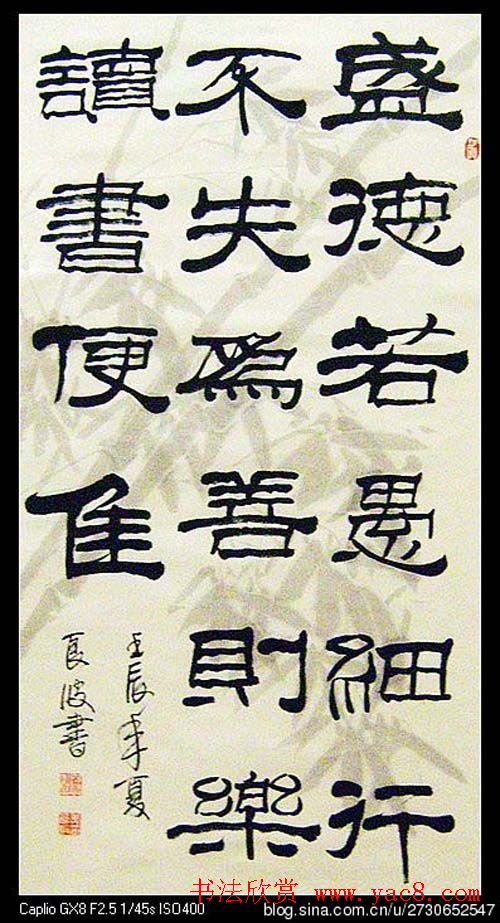 盛德若愚細行
不失爲善則樂
讀書便佳
壬辰年夏
良波書
书法欣赏 www.yac8.com
Caplio GX8 F2.5 1/45s ISO400
blog.sina.com.cn/u/2730652547